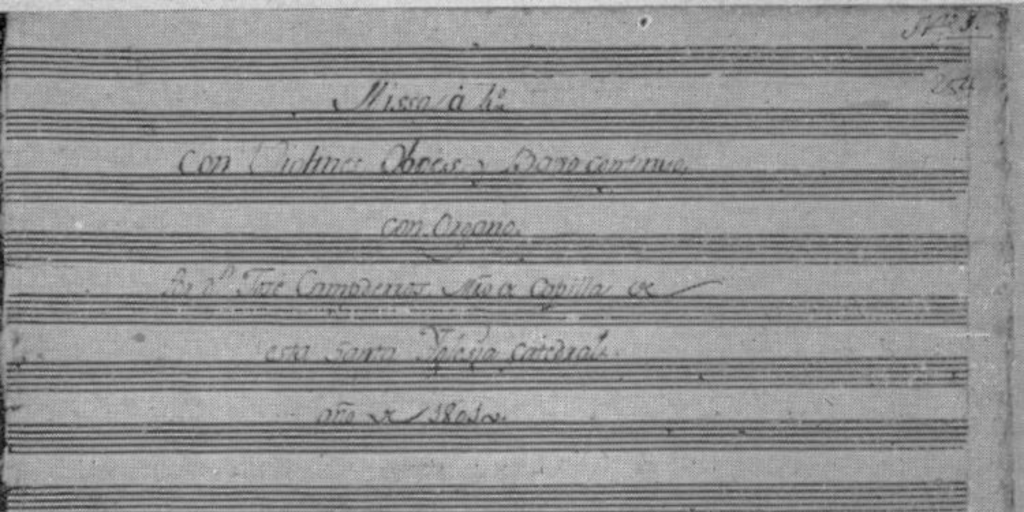 N.º 3.
254
Missa á 4.º
Con Violines Oboes y Baxo continuo,
con Organo.
De D.n José Campderros Mro de Capilla de
esta Santa Yglesia Catedral.
año de 1801.